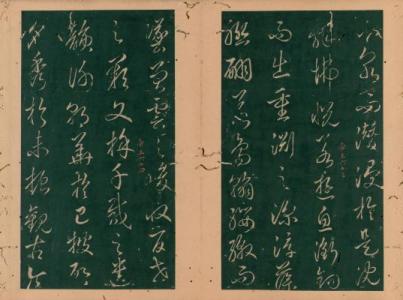 下泉而潛浸於是沈
辭怫悅若遊魚銜鉤
而出重淵之深浮藻
聯翩若鳥翰纓繳而
墜曾雲之峻收百世
之闕文採千載之遺
韻謝朝華於已披啟
夕秀於未振觀古今